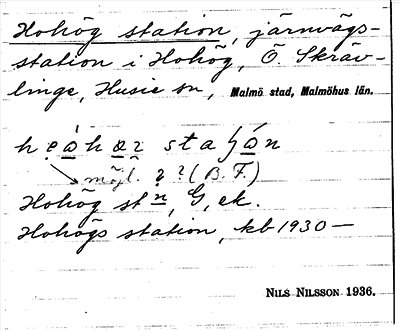 Hohög station, järnvägs-
station i Hohög, Ö. Skräv-
linge, Husie sn, Malmö stad, Malmöhus län.
möjl. ? ?(B.F.)
Hohög stn, G, ek.
Hohögs station, kb 1930—
NILS NILSSON 1936.